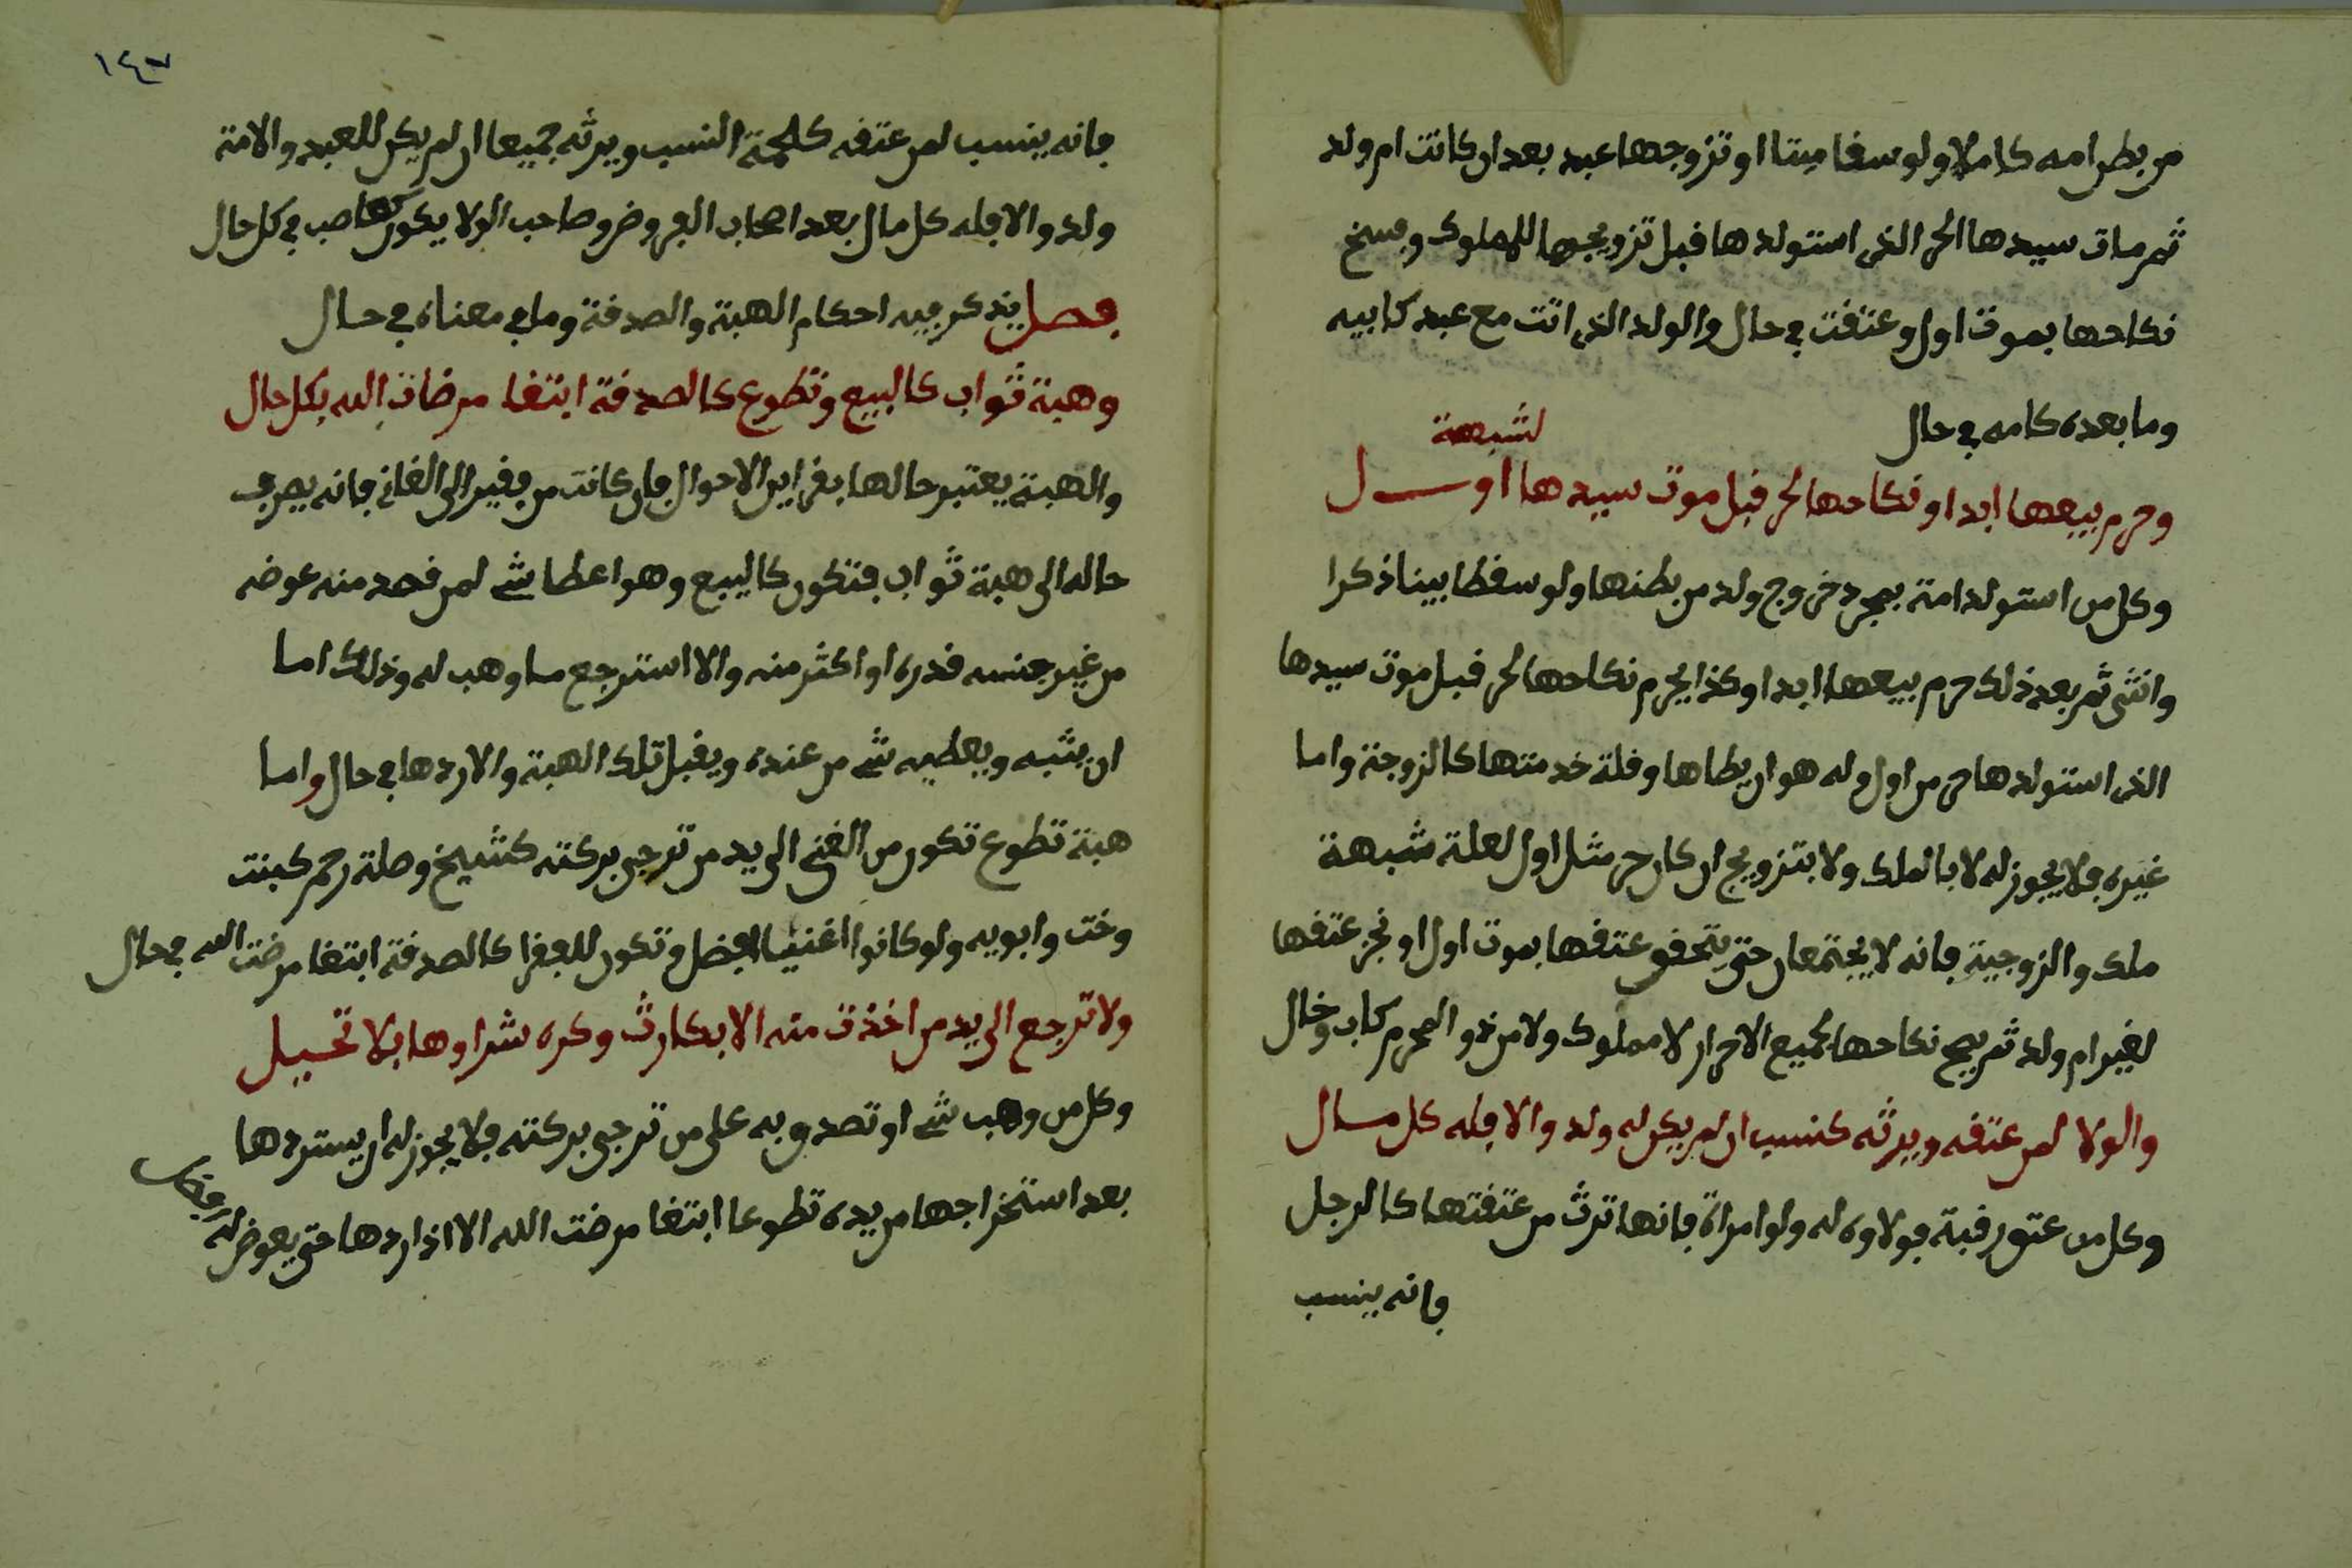 من بطن امه كاملا ولو سقا ميتا او تزوجها عبد بعد ان كانت ام ولد
ثم مات سيدها الحر الذى استولدها قبل تزويجها للمملوك وفسخ
نكاحها بموت اول وعتقت في حال والولد الذى اتت مع عبد كابيه
وما بعده كامه في حال
لشبهة
وحرم بيعها ابدا و نكاحها لحر قبل موت سيدها اول
وكل من استولد امة بمجرد خروج ولد من بطنها ولو سقطا بينا ذكرا
وانثى ثم بعد ذلك حرم بيعها ابدا وكذا يحرم نكاحها لحر قبل موت سيدها
الذى استولدها حر من اول وله هو ان يطاها وقلة خدمتها كالزوجة واما
غيره فلا يجوز له لا بالملك ولا بتزويج ان كان حر مثل اول لعلة شبهة
ملك والزوجية فانه لا يجتمعان حتى يتحقق عتقها بموت اول او نجز عتقها
لغير ام ولد ثم يصح نكاحها لجميع الاحرار لا مملوك ولا من ذو المحرم كاب وخال
والولا لمن عتقه ويرثه كنسب ان لم يكن له ولد والا فله كل مال
وكل من عتق رقبة فولاوه له ولو امراة فانها ترث من عتقتها كالرجل
فانه ينسب
١٤٧
فانه ينسب لمن عتقه كلحمة النسب ويرثه جميعا ان لم يكن للعبد والامة
ولد والا فله كل مال بعد اصحاب الفروض وصاحب الولا يكون كعاصب في كل حال
فصل يذكر فيه احكام الهبة والصدقة وما في معناه في حال
وهبة ثواب كالبيع وتطوع كالصدقة ابتغا مرضات الله بكل حال
والهبة يعتبر حالها بقراين الاحوال فان كانت من فقير الى الغاني فانه يصرف
حاله الى هبة ثواب فتكون كالبيع وهو اعطا شي لمن قصد منه عوضه
من غير جنسه قدره او اكثر منه والا استرجع ما وهب له وذلك اما
ان يثبه ويعطيه شي من عنده ويقبل تلك الهبة والا ردها في حال واما
هبة تطوع تكون من الغني الى يد من ترجى بركته كشيخ وصلة رحم كبنت
وخت وابويه ولو كانوا اغنيا افضل وتكون للفقرا كالصدقة ابتغا مرضت الله في حال
ولا ترجع الى يد من اخذت منه الا بكارث وكره شراوها بلا تحييل
وكل من وهب شي او تصدق به على من ترجى بركته فلا يجوز له ان يستردها
بعد استخراجها من يده تطوعا ابتغا مرضت الله الا اذا ردها حتى يعوض له